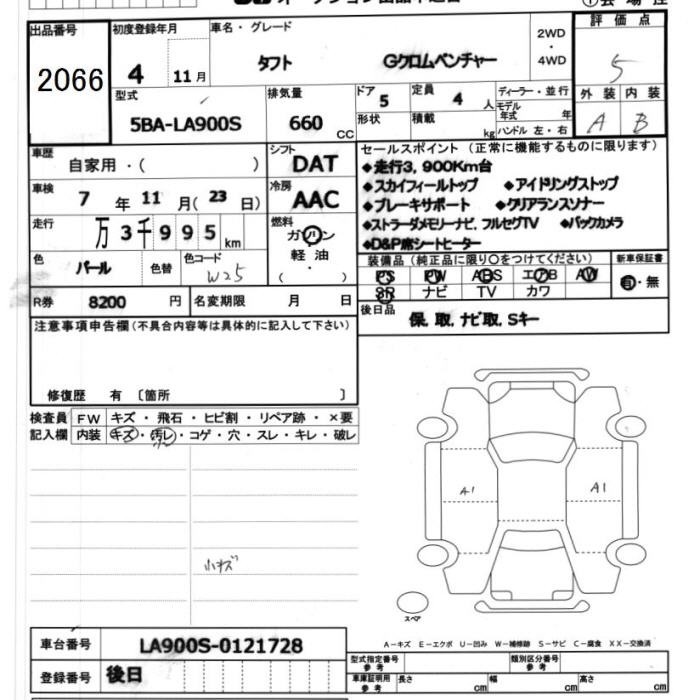 出品番号 初度登録年月 車名・グレード 2WD・4WD 評価点
2066 4 11月 タフト Gクロムベンチャー 5
型式 排気量 ドア 5 定員 4 人 ディーラー・並行 外装 内装
5BA-LA900S 660 CC 形状 積載 kg モデル年式 年 A B
ハンドル 左・右
車歴 自家用・( ) シフト DAT セールスポイント (正常に機能するものに限ります)
◆走行3,900Km台
車検 7 年 11 月 (23 日) 冷房 AAC ◆スカイフィールトップ ◆アイドリングストップ
◆ブレーキサポート ◆クリアランスソナー
走行 万 3千995 km 燃料 ガソリン ◆ストラーダメモリーナビ,フルセグTV ◆バックカメラ
軽油 ・ ( ) ◆D&P席シートヒーター
色 パール 色替 色コード W25 装備品 (純正品に限り○をつけてください) 新車保証書
PS PW ABS エアB AW 有・無
SR ナビ TV カワ
R券 8200 円 名変期限 月 日
後日品 保,取,ナビ取,Sキー
注意事項申告欄 (不具合内容等は具体的に記入して下さい)
修復歴 有 〔箇所 〕
検査員 FW キズ・飛石・ヒビ割・リペア跡・×要
記入欄 内装 キズ・汚レ・コゲ・穴・スレ・キレ・破レ
A1 A1
小キズ
スペア
A−キズ E−エクボ U−凹み W−補修跡 S−サビ C−腐食 XX−交換済
車台番号 LA900S-0121728
型式指定番号 参考 類別区分番号 参考
登録番号 後日 車庫証明用 参考 長さ cm 幅 cm 高さ cm